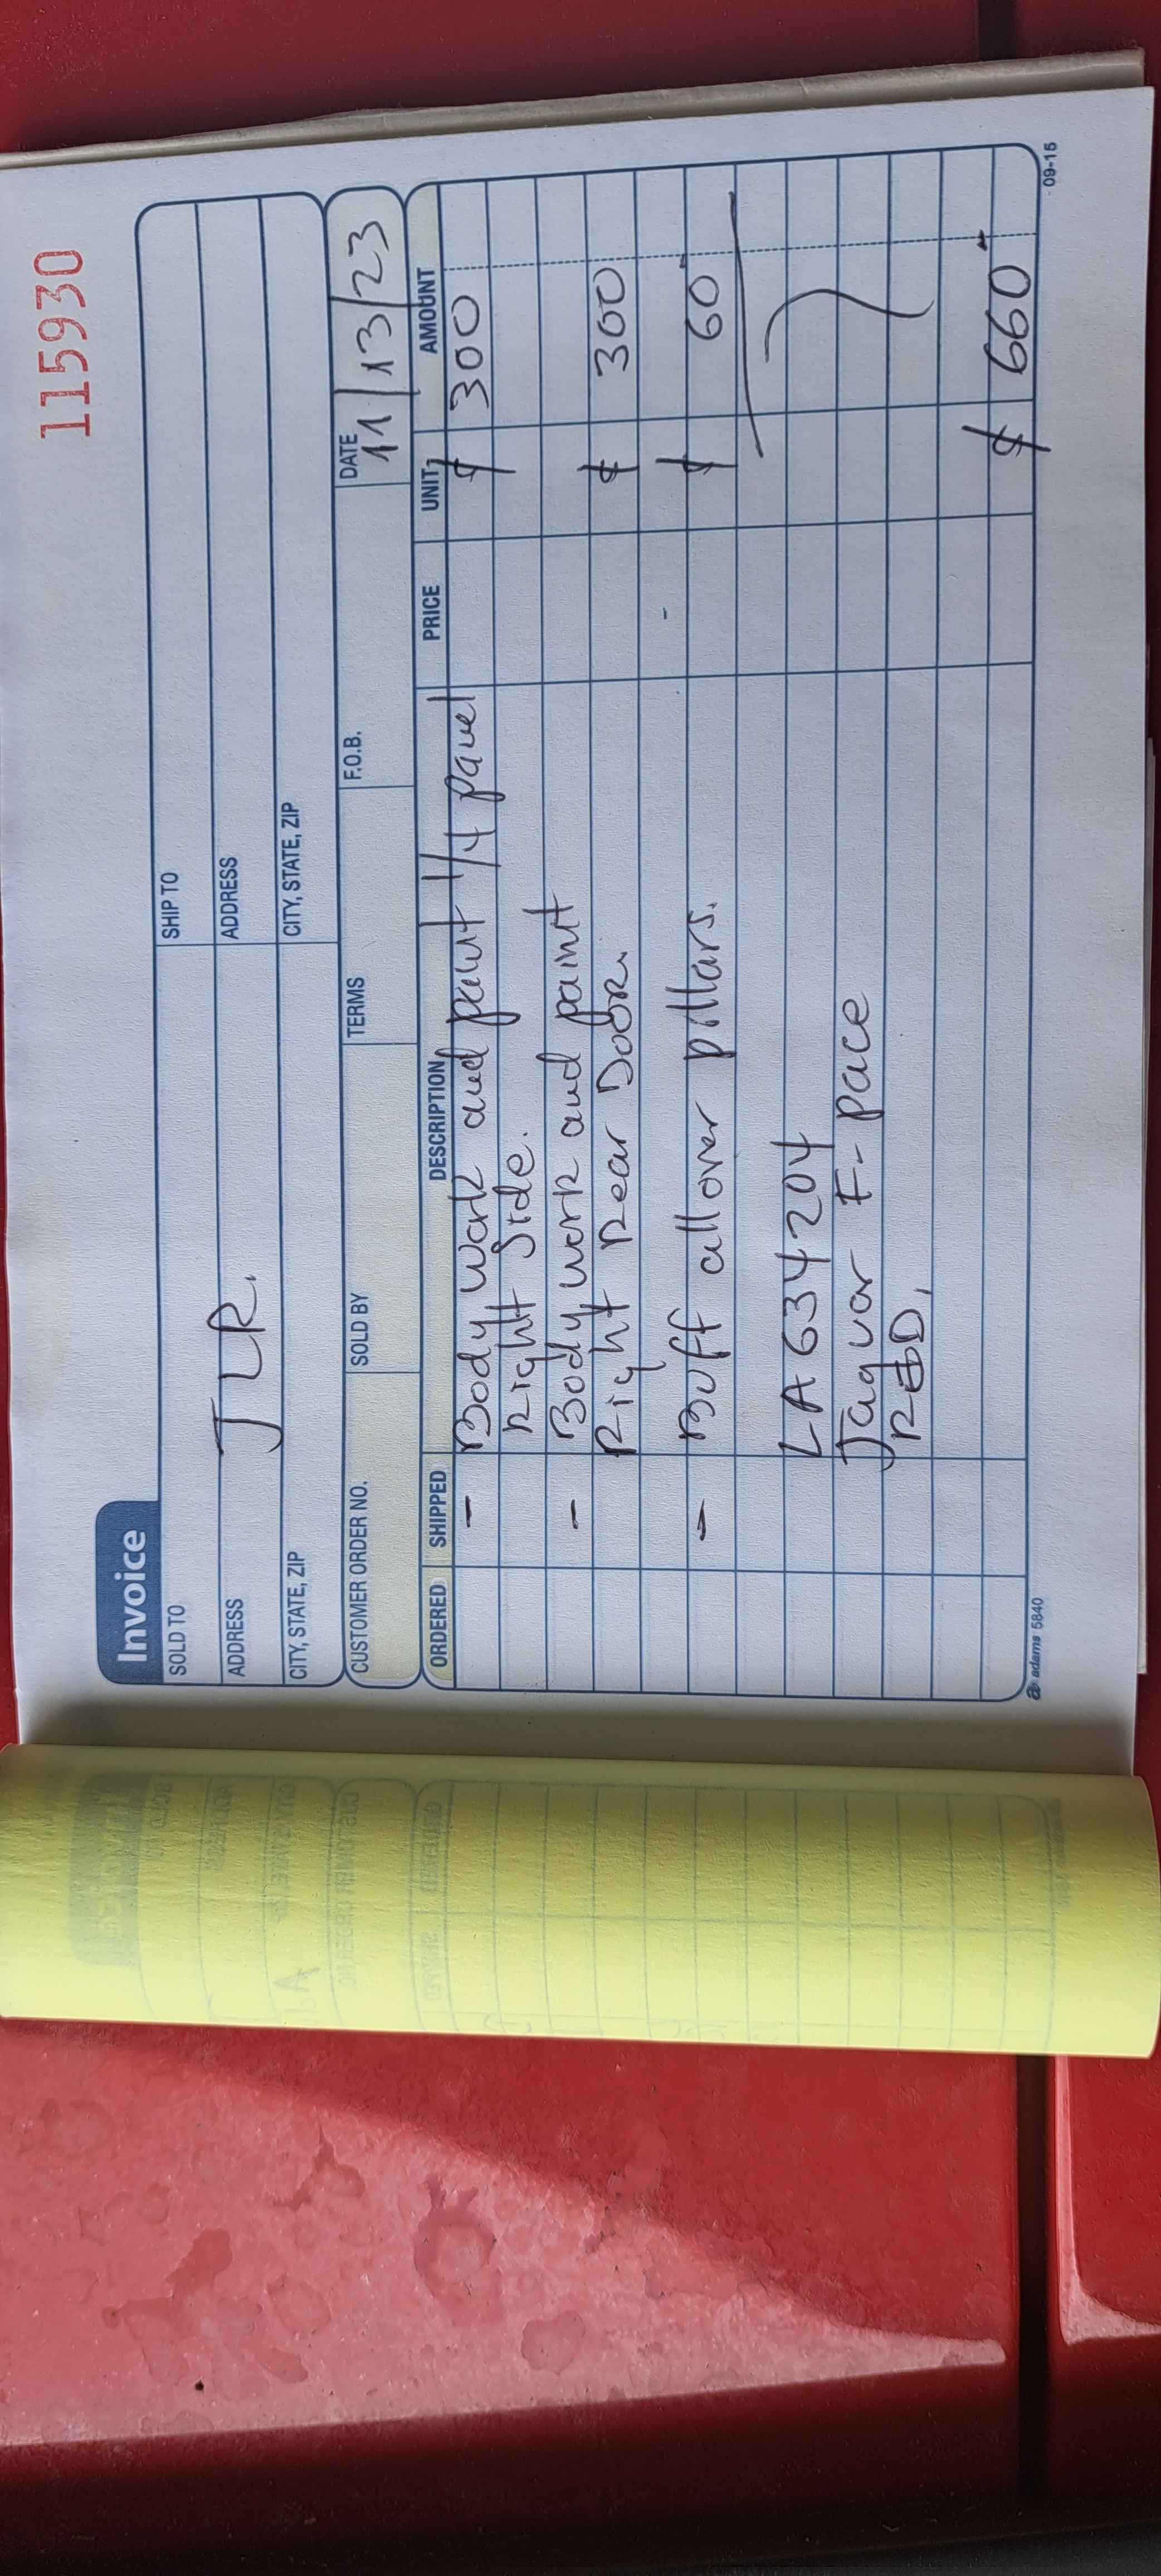 115930
Invoice
SOLD TO
SHIP TO
ADDRESS
JLR.
ADDRESS
CITY, STATE, ZIP
CITY, STATE, ZIP
CUSTOMER ORDER NO.
SOLD BY
TERMS
F.O.B.
DATE
11/13/23
ORDERED SHIPPED DESCRIPTION PRICE UNIT AMOUNT
- Body work and paint 1/4 panel $ 300
Right Side.
- Body work and paint
Right Rear DOOR. $ 300
- Buff all over pillars. $ 60
LA634204
Jaguar F-pace
RED.
$ 660
adams 5840
09-15